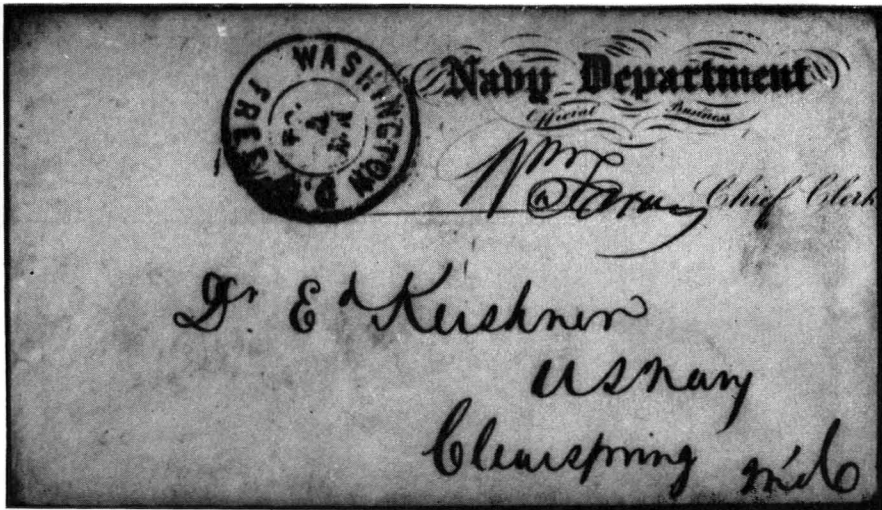 WASHINGTON D.C.
FREE
Navy Department
Official Business
Wm Faxon Chief Clerk
Dr. Ed Kershner
US Navy
Clearspring Md